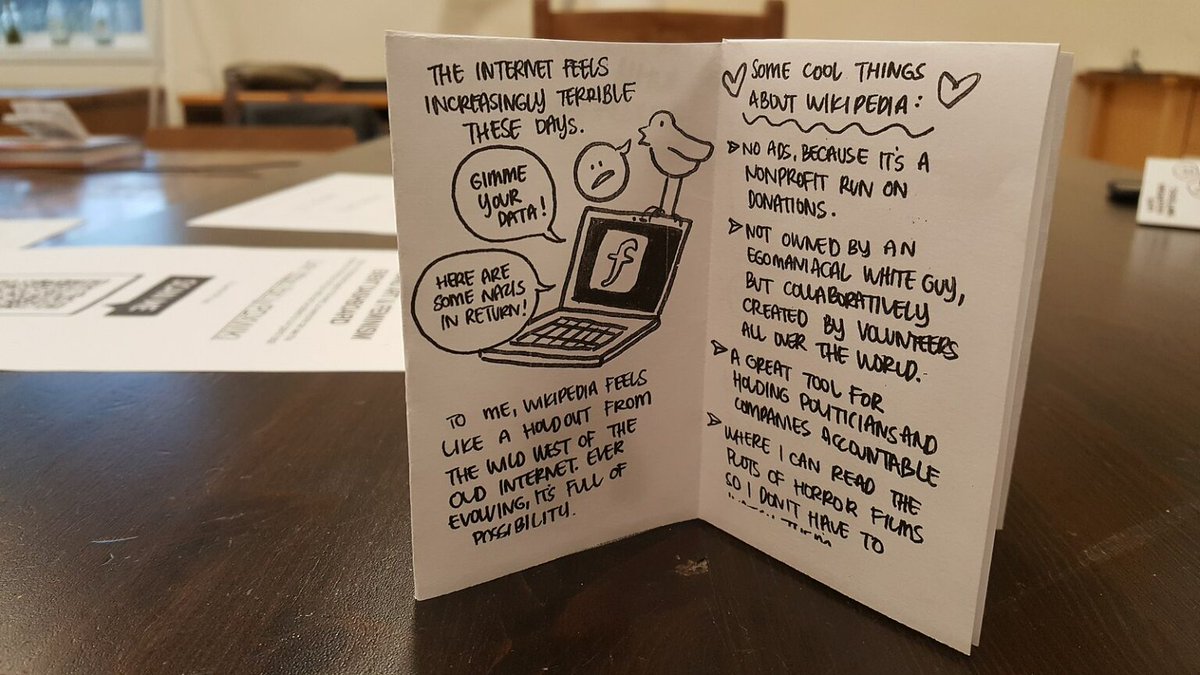 THE INTERNET FEELS
INCREASINGLY TERRIBLE
THESE DAYS.
GIMME
YOUR
DATA!
HERE ARE
SOME NAZIS
IN RETURN!
f
TO ME, WIKIPEDIA FEELS
LIKE A HOLDOUT FROM
THE WILD WEST OF THE
OLD INTERNET. EVER
EVOLVING, IT'S FULL OF
POSSIBILITY.
SOME COOL THINGS
ABOUT WIKIPEDIA:
NO ADS, BECAUSE IT'S A
NONPROFIT RUN ON
DONATIONS.
NOT OWNED BY AN
EGOMANIACAL WHITE GUY,
BUT COLLABORATIVELY
CREATED BY VOLUNTEERS
ALL OVER THE WORLD.
A GREAT TOOL FOR
HOLDING POLITICIANS AND
COMPANIES ACCOUNTABLE
WHERE I CAN READ THE
PLOTS OF HORROR FILMS
SO I DON'T HAVE TO